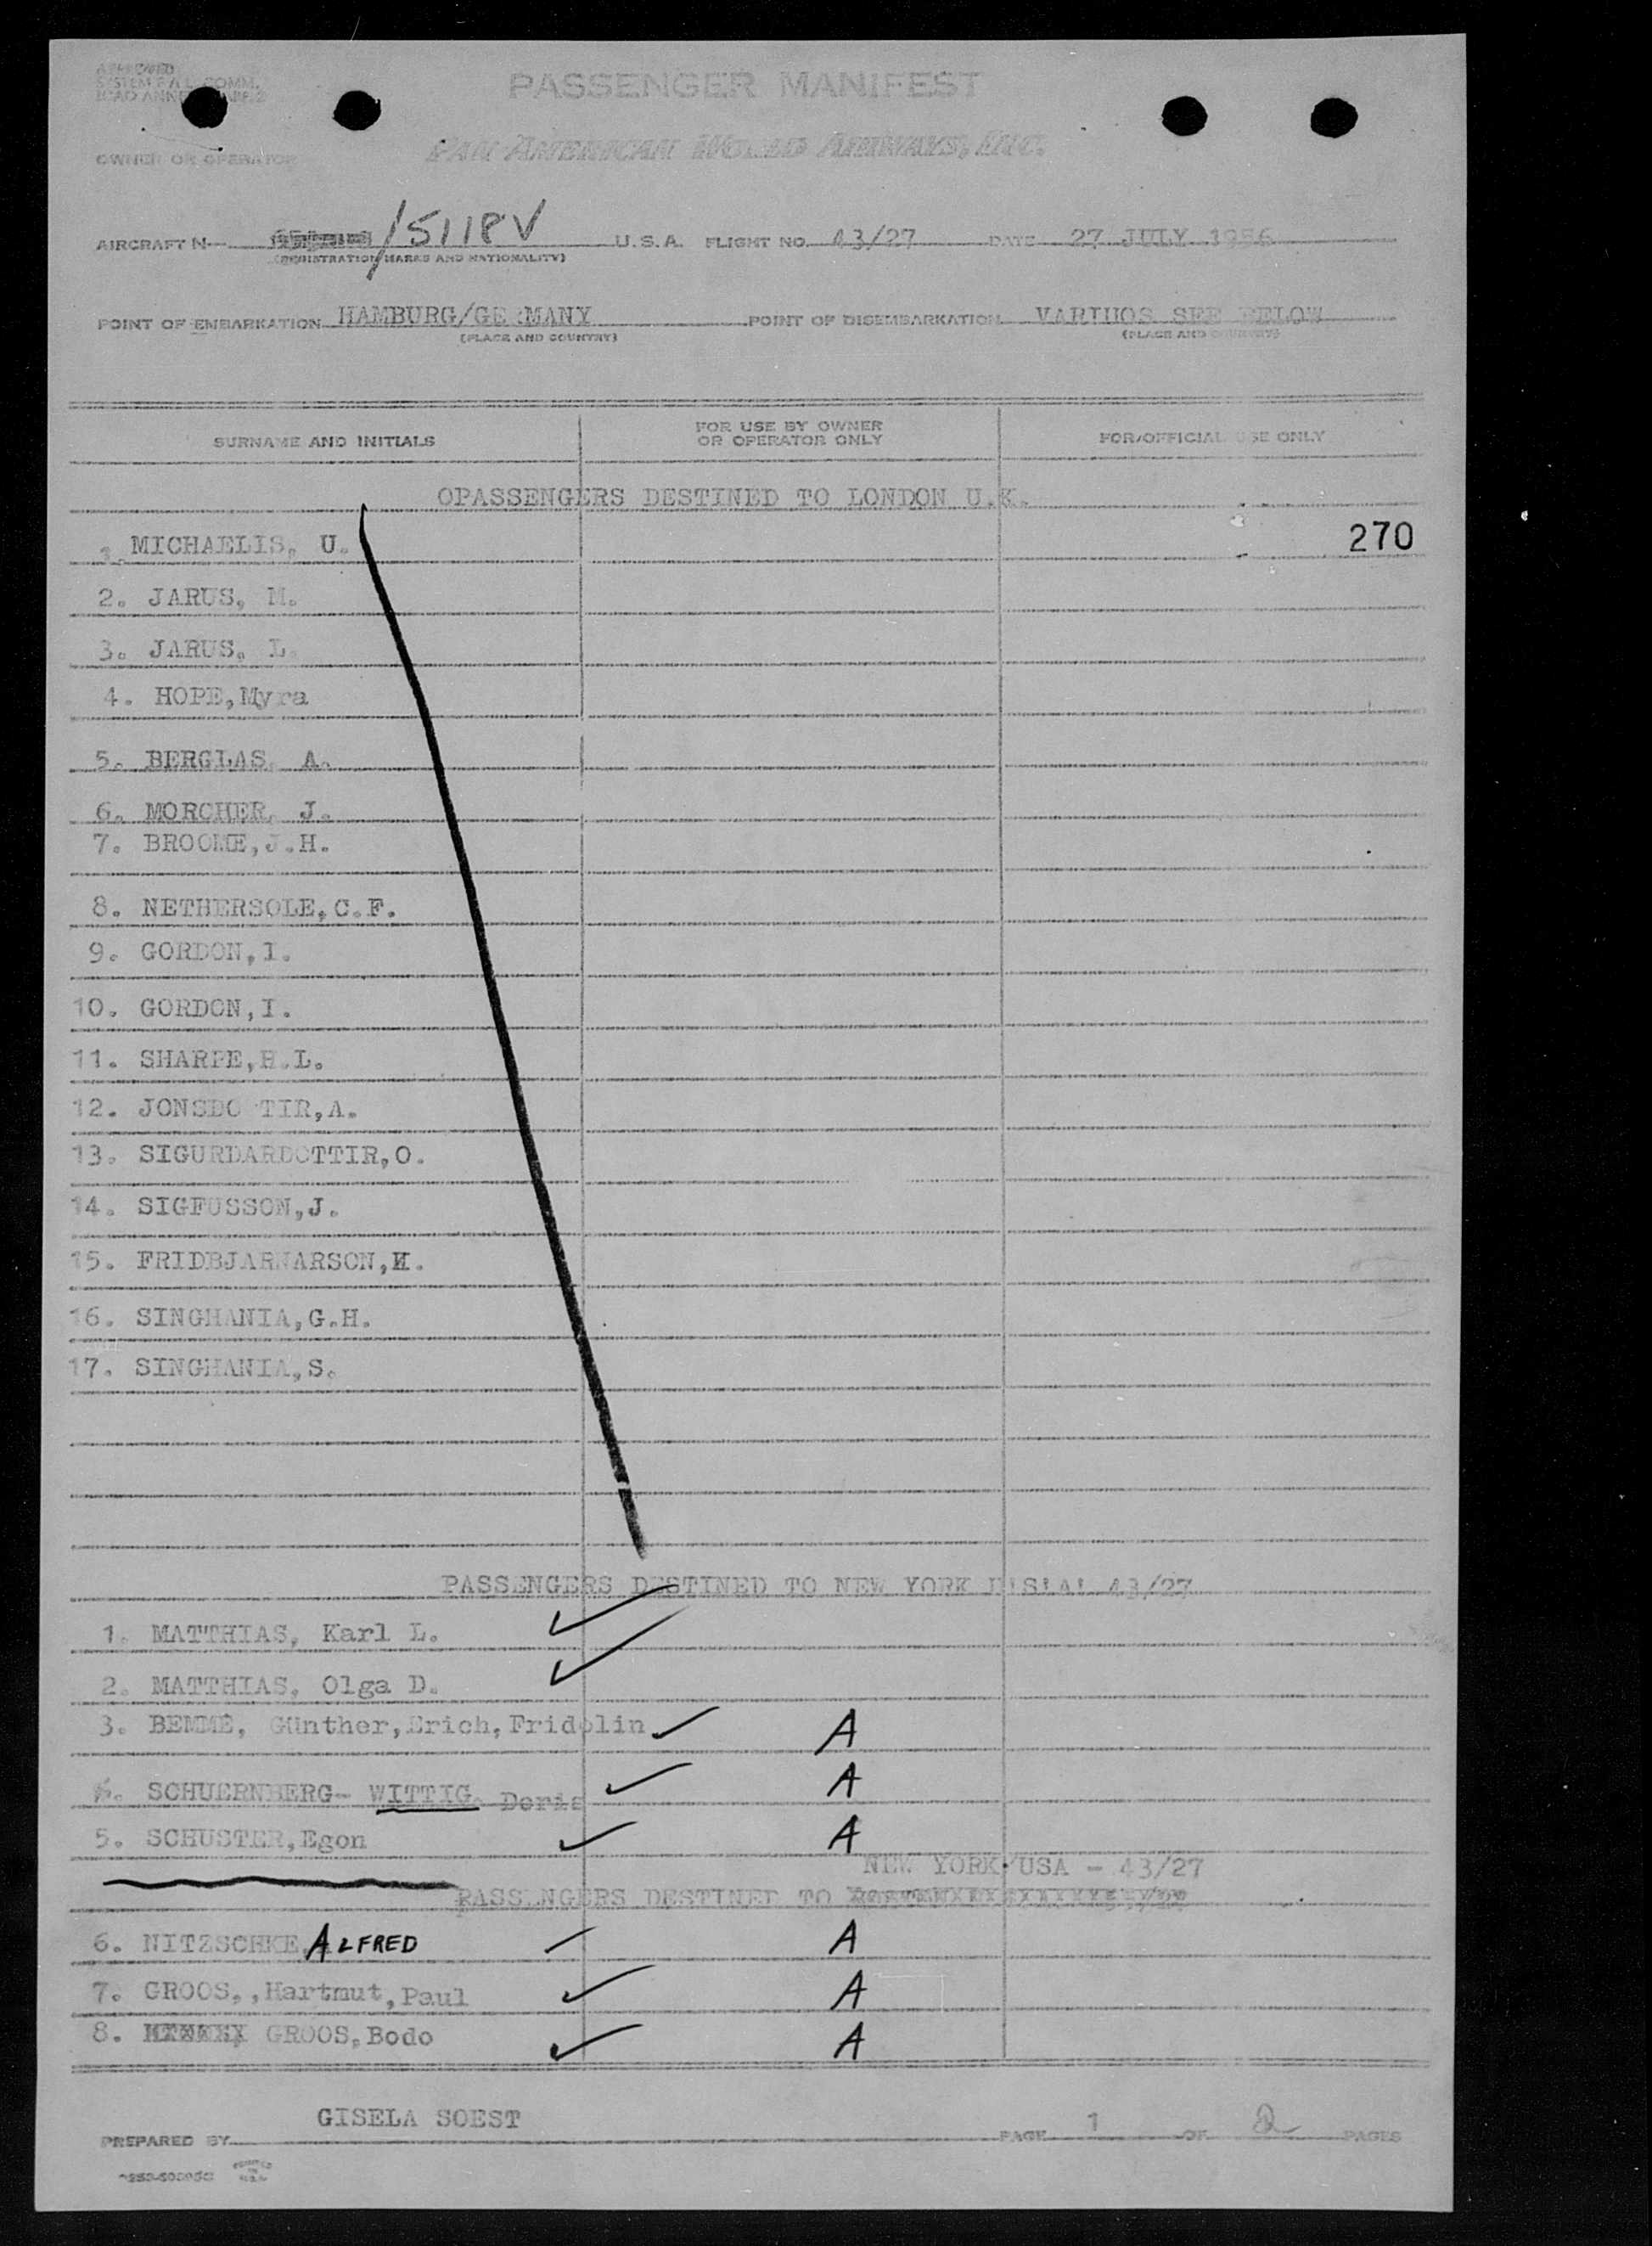 PASSENGER MANIFEST
OWNER OR OPERATOR PAN AMERICAN WORLD AIRWAYS, INC.
AIRCRAFT N- /5118V U.S.A. FLIGHT NO. 43/27 DATE 27 JULY 1956
(REGISTRATION MARKS AND NATIONALITY)
POINT OF EMBARKATION HAMBURG/GERMANY POINT OF DISEMBARKATION VARIUOS SEE BELOW
(PLACE AND COUNTRY) (PLACE AND COUNTRY)
SURNAME AND INITIALS FOR USE BY OWNER OR OPERATOR ONLY FOR OFFICIAL USE ONLY
OPASSENGERS DESTINED TO LONDON U.K.
1. MICHAELIS, U. 270
2. JARUS, M.
3. JARUS, L.
4. HOPE, Myra
5. BERGLAS, A.
6. MORCHER, J.
7. BROOME, J.H.
8. NETHERSOLE, C.F.
9. GORDON, I.
10. GORDON, I.
11. SHARPE, H.L.
12. JONSDO TIR, A.
13. SIGURDARDOTTIR, O.
14. SIGFUSSON, J.
15. FRIDBJARNARSON,
16. SINGHANIA, G.H.
17. SINGHANIA, S.
PASSENGERS DESTINED TO NEW YORK U!S!A! 43/27
1. MATTHIAS, Karl L.
2. MATTHIAS, Olga D.
3. BEMME, Günther, Erich, Fridolin A
SCHUERNBERG- WITTIG, Doris A
5. SCHUSTER, Egon A
NEW YORK/USA - 43/27
PASSENGERS DESTINED TO
6. NITZSCHKE, ALFRED A
7. GROOS,, Hartmut, Paul A
8. GROOS, Bodo A
GISELA SOEST
PREPARED BY PAGE 1 OF 2 PAGES